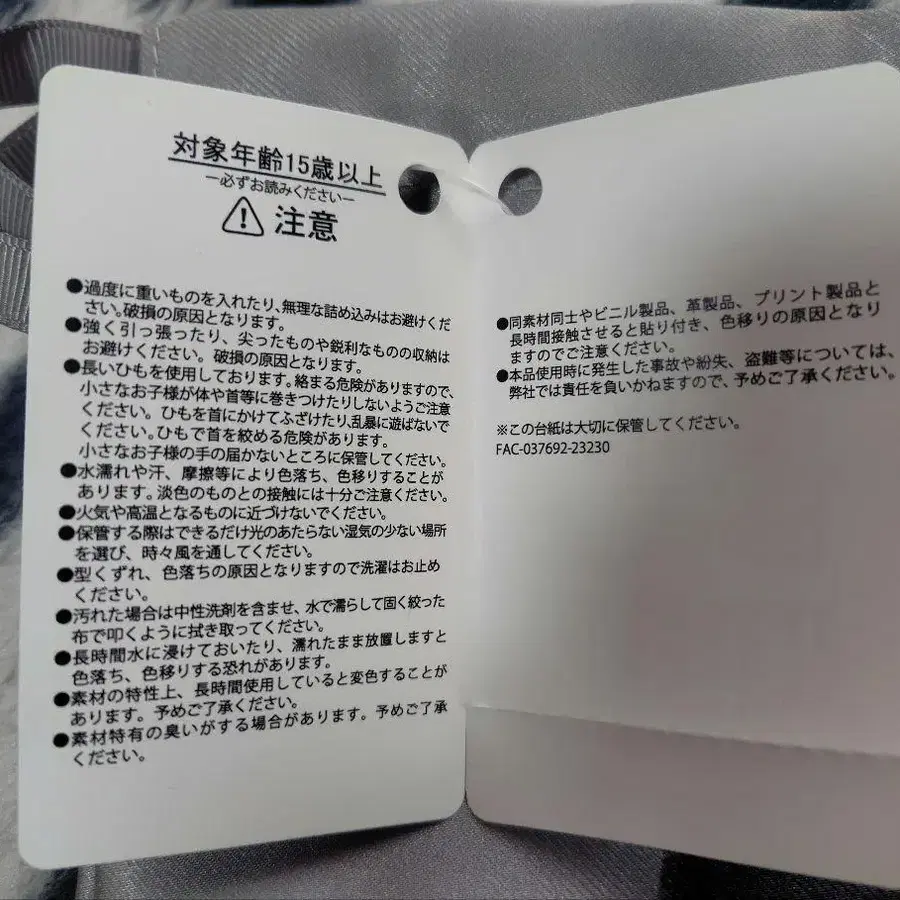 対象年齢15歳以上
ー必ずお読みくださいー
注意
●過度に重いものを入れたり、無理な詰め込みはお避けくだ
さい。破損の原因となります。
●強く引っ張ったり、尖ったものや鋭利なものの収納は
お避けください。破損の原因となります。
●長いひもを使用しております。絡まる危険がありますので、
小さなお子様が体や首等に巻きつけたりしないようご注意
ください。ひもを首にかけてふざけたり、乱暴に遊ばないで
ください。ひもで首を絞める危険があります。
小さなお子様の手の届かないところに保管してください。
●水濡れや汗、摩擦等により色落ち、色移りすることが
あります。淡色のものとの接触には十分ご注意ください。
●火気や高温となるものに近づけないでください。
●保管する際はできるだけ光のあたらない湿気の少ない場所
を選び、時々風を通してください。
●型くずれ、色落ちの原因となりますので洗濯はお止め
ください。
●汚れた場合は中性洗剤を含ませ、水で濡らして固く絞った
布で叩くように拭き取ってください。
●長時間水に浸けておいたり、濡れたまま放置しますと
色落ち、色移りする恐れがあります。
●素材の特性上、長時間使用していると変色することが
あります。予めご了承ください。
●素材特有の臭いがする場合があります。予めご了承
ください。
●同素材同士やビニル製品、革製品、プリント製品と
長時間接触させると貼り付き、色移りの原因となり
ますのでご注意ください。
●本品使用時に発生した事故や紛失、盗難等については、
弊社では責任を負いかねますので、予めご了承ください。
※この台紙は大切に保管してください。
FAC-037692-23230